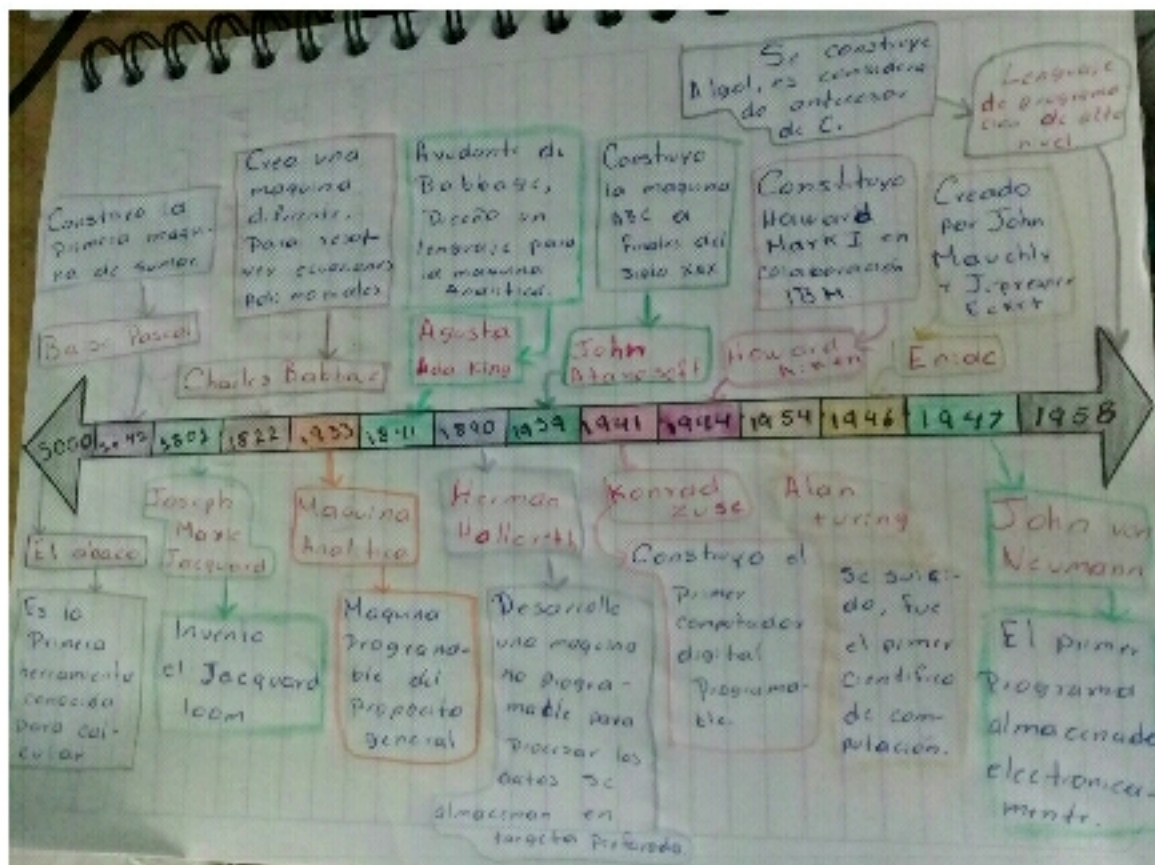 Se construye
Algol, es considera
do antecesor
de C.
Lenguaje
de programa
cion de alto
nivel
Construyo la
primera maqui-
na de sumar
Crea una
maquina
difrente.
Para resol-
ver ecuaciones
polinomiales
Ayudante de
Babbage,
Diseño un
lenguaje para
la maquina
Analitica.
Construyo
la maquina
ABC a
finales del
siglo xxx
Constituyo
Haward
Mark I en
colaboración
IBM
Creado
por John
Mauchly
y J. presper
Eckert
Pascal
Charles Babbage
Agusta
Ada King
John
Atanasoft
Howard
Eniac
5000
1802
1822
1933
1841
1890
1939
1941
1944
1954
1946
1947
1958
El abaco
Joseph
Marie
Jacquard
Maquina
Analitica
Herman
Konrad
Zuse
Alan
turing
John von
Neumann
Es la
Primera
herramienta
conocida
para cal-
cular
Invento
el Jacquard
loom
Maquina
Programa-
ble del
Proposito
general
Desarrolle
una maquina
no progra-
mable para
Procesar los
datos se
almacenan en
targeta Perforada.
Construyo el
Primer
computador
digital
Programa-
ble.
Se suici-
do, fue
el primer
cientifico
de com-
putación.
El primer
Programa
almacenado
electronica-
mente.